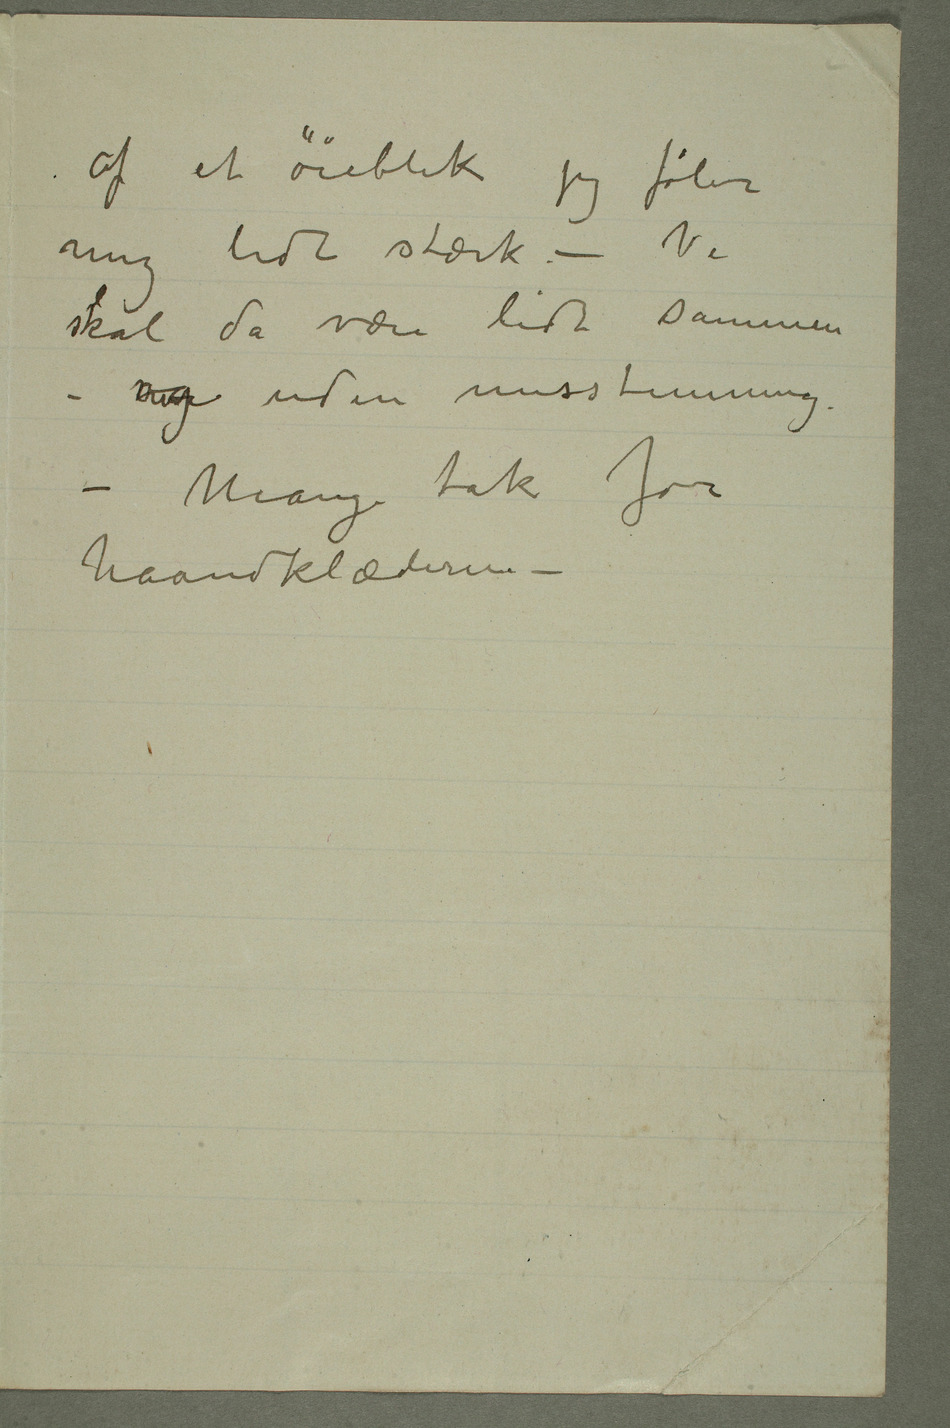 af et öieblik jeg føler
mig lidt stærk. – Vi
skal da være lidt sammen
– uden misstemning.
– Mange tak for
haandklæderne –